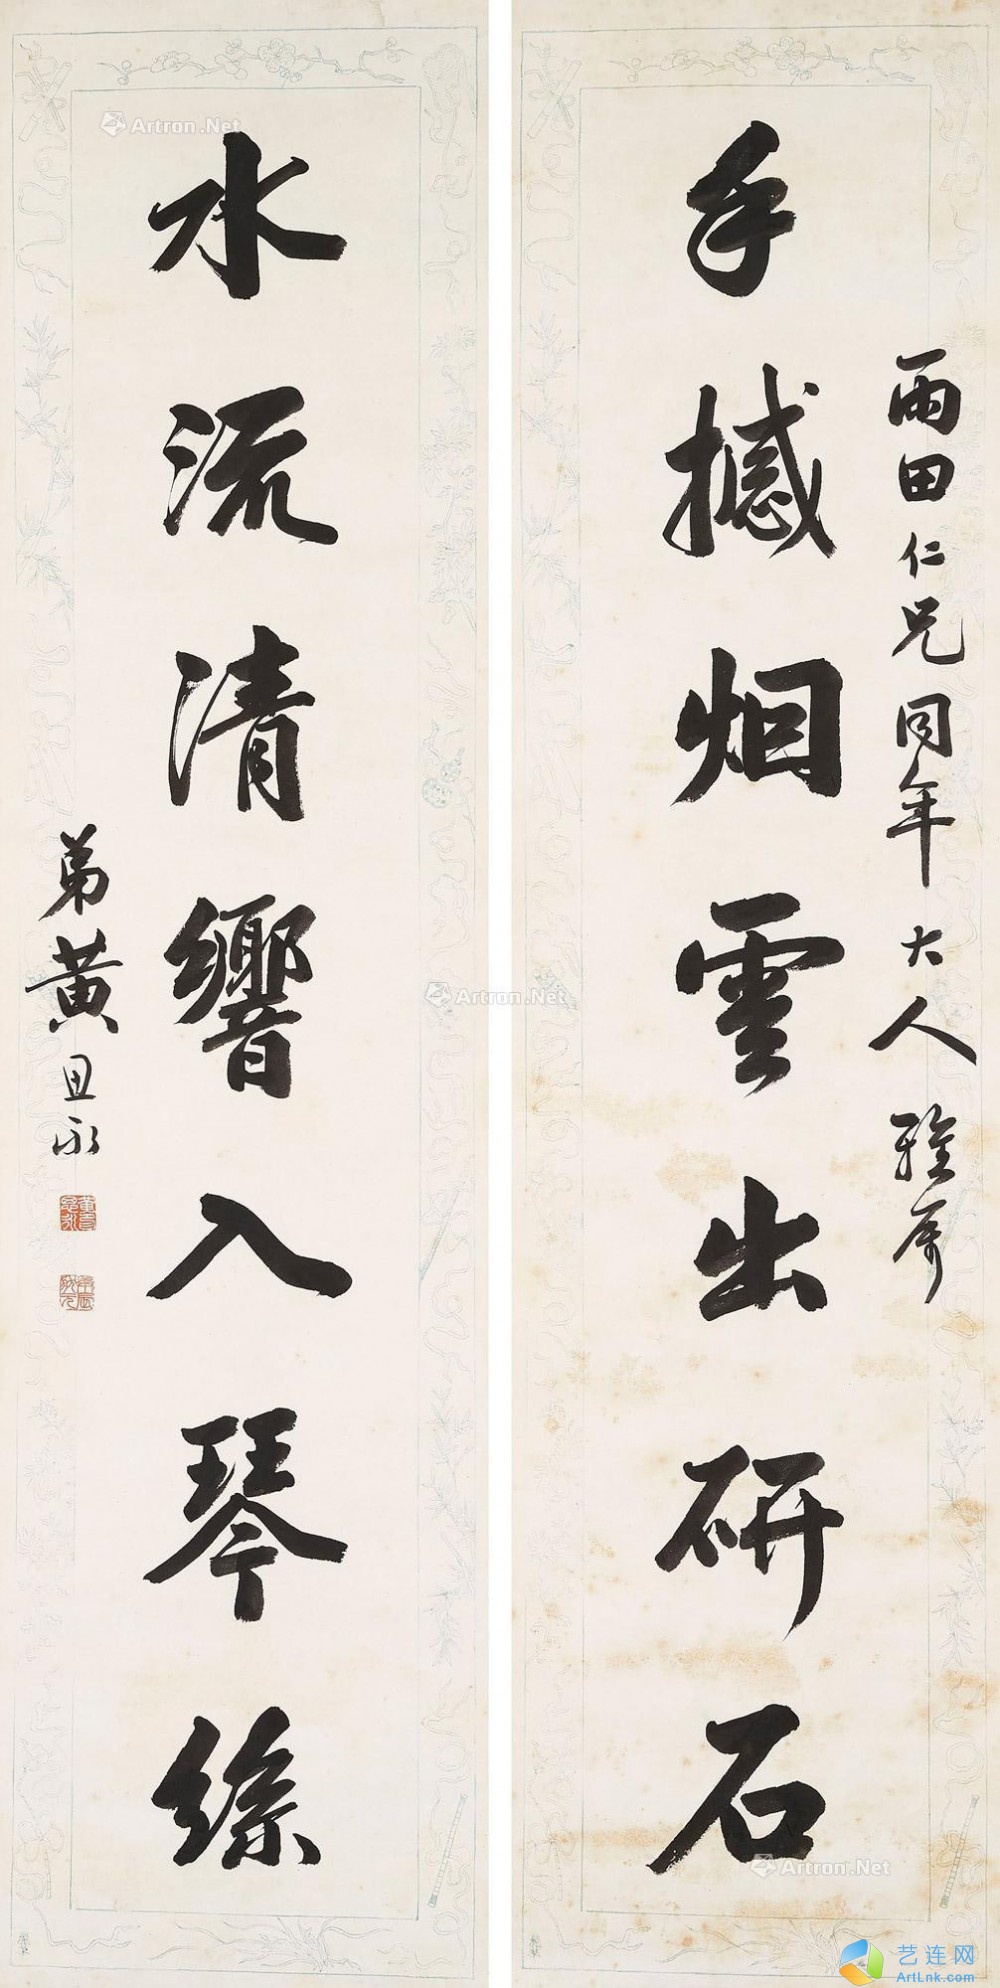 雨田仁兄同年大人雅屬
手撼烟雲出研石
水流清響入琴絲
弟黃思永
Artron.Net
Artron.Net
Artron.Net
艺连网
ArtLnk.com